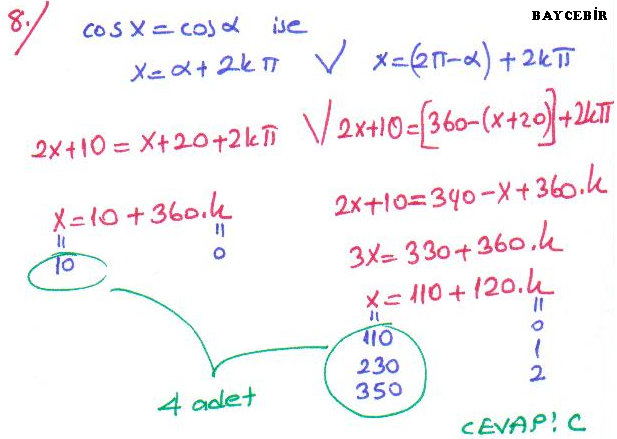 BAYCEBİR
8./ cosx = cosα ise
x = α + 2kπ ∨ x = (2π-α) + 2kπ
2x+10 = x+20+2kπ ∨ 2x+10 = [360-(x+20)]+2kπ
x = 10 + 360.k
=
=
10
0
2x+10 = 340-x+360.k
3x = 330+360.k
x = 110 + 120.k
=
=
110
0
230
1
350
2
4 adet
CEVAP! C